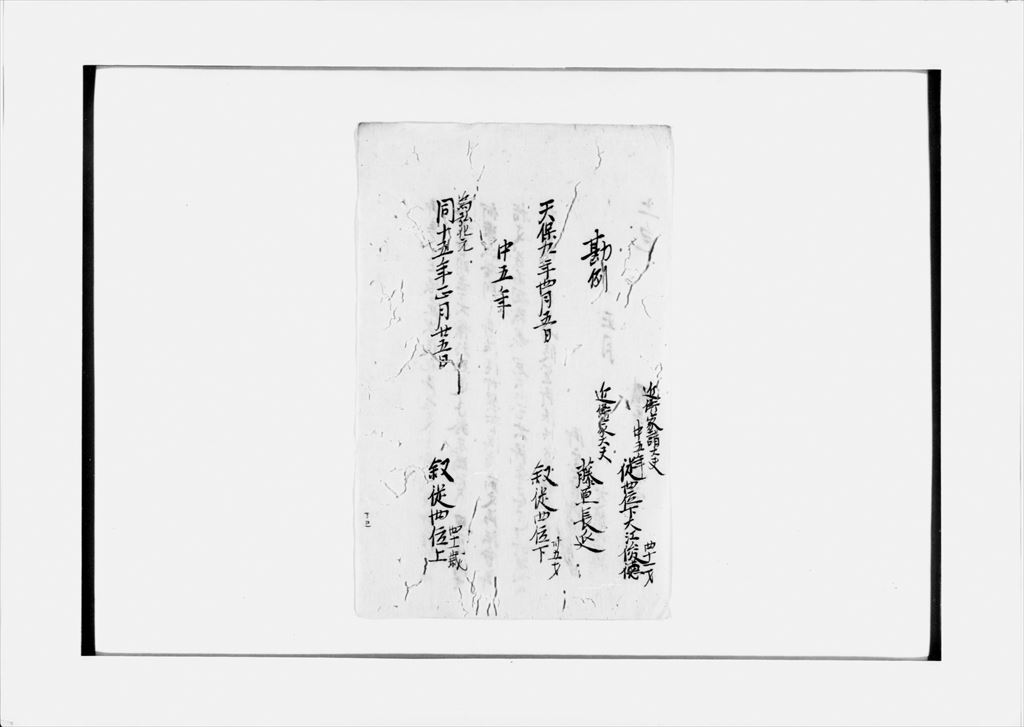 近衛家諸大夫
中五年
従四位下大江俊徳
四十一才
勘例
近衛家諸大夫
藤原長延
天保九年四月五日
叙従四位下
卅五才
中五年
為弘化元
同十五年正月廿五日
叙従四位上
四十一歳